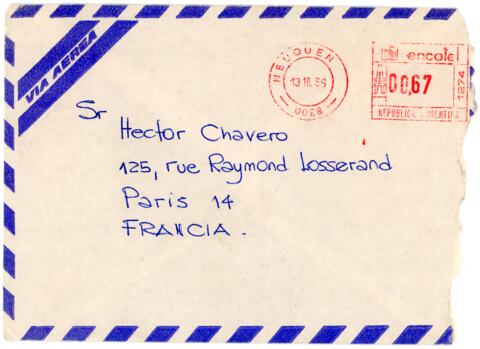 VIA AEREA
NEUQUEN
13.10.86
0028
encotel
00,67
1274
REPUBLICA ARGENTINA
Sr
Hector Chavero
125, rue Raymond Losserand
Paris 14
FRANCIA.